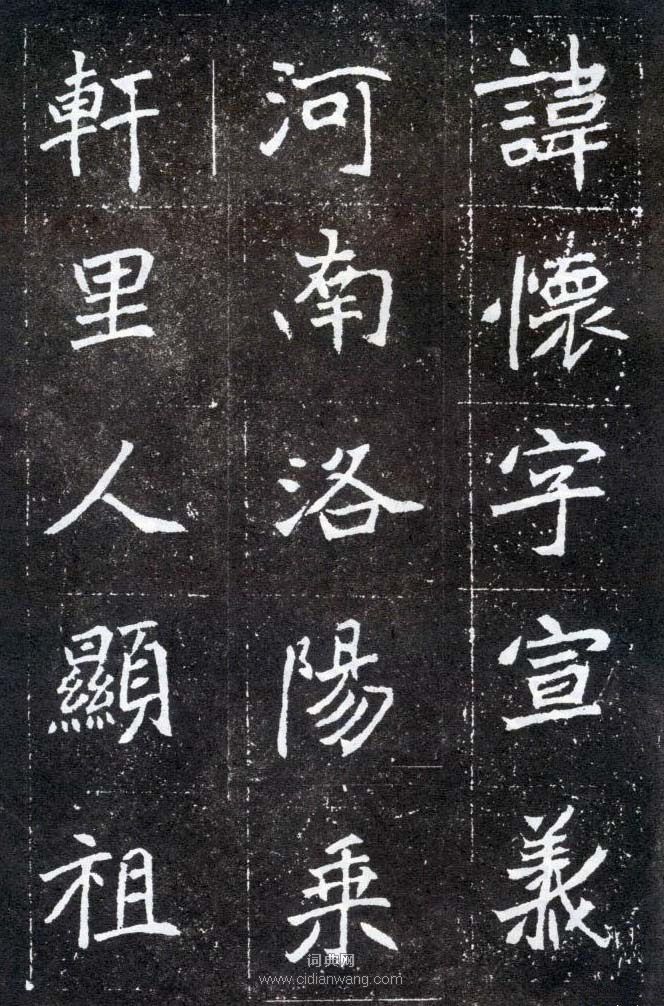 諱懷字宣義
河南洛陽乗
軒里人顯祖
词典网
www.cidianwang.com